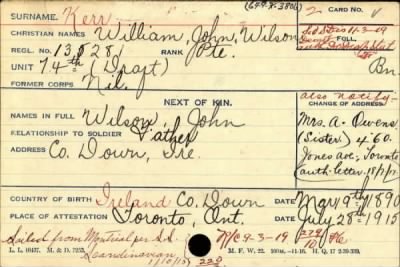 (649-K-3806)
SURNAME. Kerr 2 CARD NO. V
CHRISTIAN NAMES William, John, Wilson
REGL. NO. 135281 RANK Pte. FOLL.
UNIT 74th (Draft) Bn
FORMER CORPS Nil.
NEXT OF KIN. also notify-
CHANGE OF ADDRESS
NAMES IN FULL Wilson, John
RELATIONSHIP TO SOLDIER Father
ADDRESS Co. Down, Ire.
Mrs. A. Owens
(Sister) 460
Jones Ave., Toronto
(auth letter 18/7/17)
COUNTRY OF BIRTH Ireland Co. Down DATE May 9th 1890
PLACE OF ATTESTATION Toronto, Ont. DATE July 28th 1915
Sailed from Montreal per S.S.
Scandinavian 1/10/15 220
L. L. 10437. M. & D. 7252. M. F. W. 22.